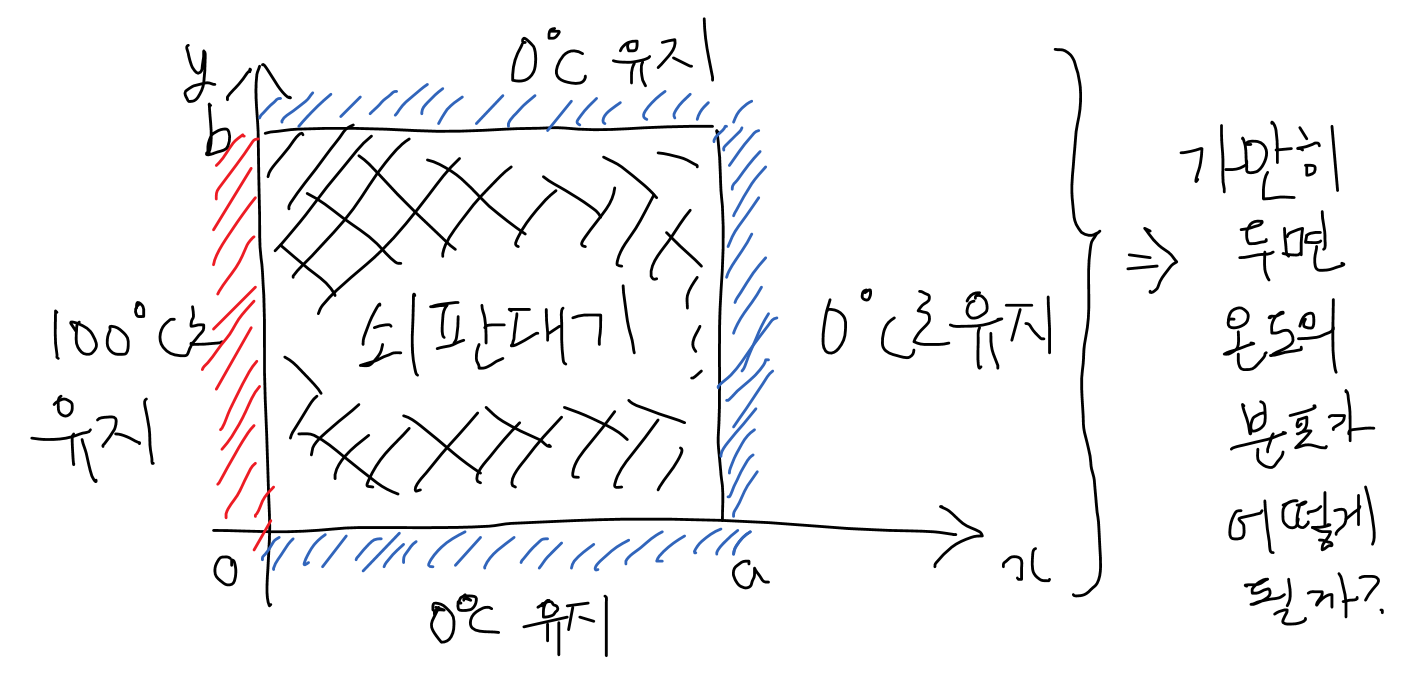 y
b
0°C 유지
100°C로
유지
쇠판대기
0°C로유지
0
a
x
0°C 유지
⇒ 가만히
두면
온도의
분포가
어떻게
될까?